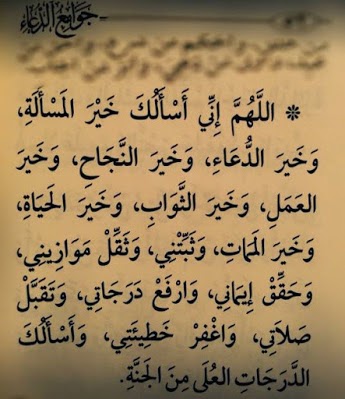 جَوَامِعُ الدُّعَاءِ
❊ اللَّهُمَّ إِنِّي أَسْأَلُكَ خَيْرَ المَسْأَلَةِ،
وَخَيرَ الدُّعَاءِ، وَخَيرَ النَّجَاحِ، وَخَيرَ
العَمَلِ، وَخَيرَ الثَّوَابِ، وَخَيرَ الحَيَاةِ،
وَخَيرَ المَمَاتِ، وَثَبِّتْنِي، وَثَقِّلْ مَوَازِينِي،
وَحَقِّقْ إِيمَانِي، وَارْفَعْ دَرَجَاتِي، وَتَقَبَّلْ
صَلاَتِي، وَاغْفِرْ خَطِيئَتِي، وَأَسْأَلُكَ
الدَّرَجَاتِ العُلَى مِنَ الجَنَّةِ.